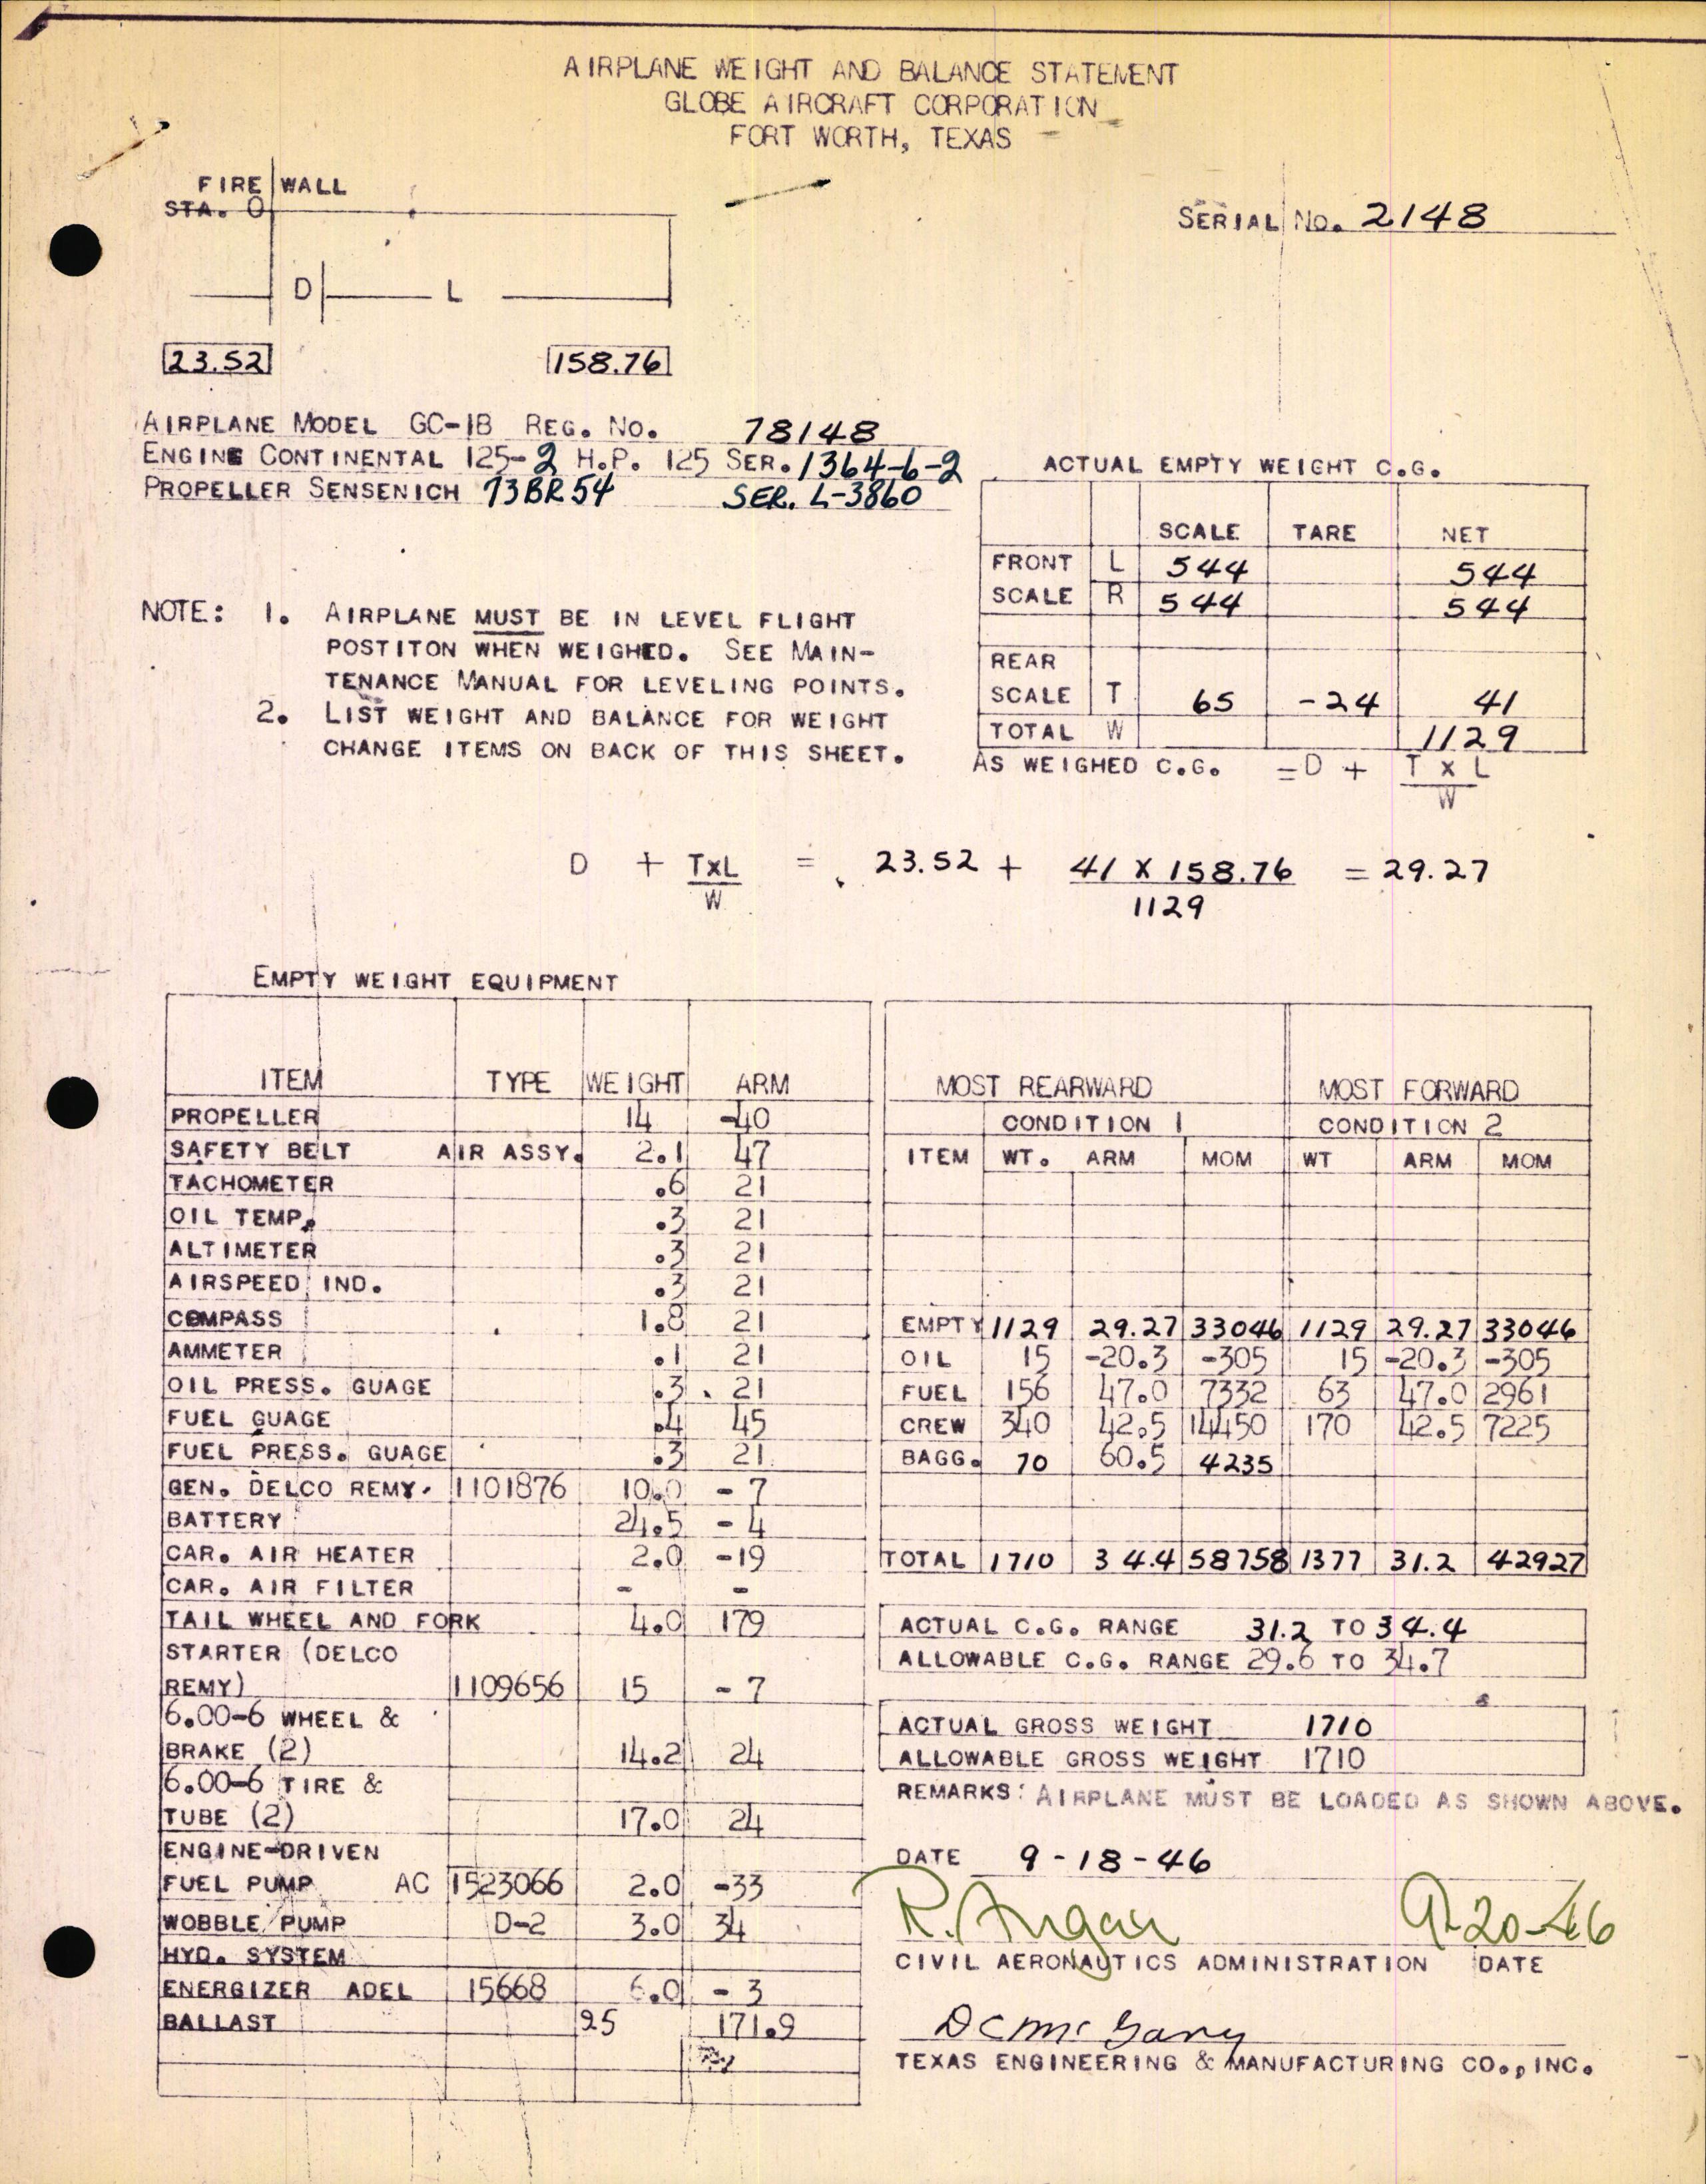 AIRPLANE WEIGHT AND BALANCE STATEMENT
GLOBE AIRCRAFT CORPORATION
FORT WORTH, TEXAS
FIRE WALL
STA. 0
SERIAL NO. 2148
D L
23.52 158.76
AIRPLANE MODEL GC-1B REG. NO. 78148
ENGINE CONTINENTAL 125-2 H.P. 125 SER. 1364-6-2
PROPELLER SENSENICH 73BR54 SER. L-3860
ACTUAL EMPTY WEIGHT C.G.
SCALE TARE NET
FRONT L 544 544
SCALE R 544 544
REAR
SCALE T 65 -24 41
TOTAL W 1129
AS WEIGHED C.G. = D + T x L
W
NOTE: 1. AIRPLANE MUST BE IN LEVEL FLIGHT
POSTITON WHEN WEIGHED. SEE MAIN-
TENANCE MANUAL FOR LEVELING POINTS.
2. LIST WEIGHT AND BALANCE FOR WEIGHT
CHANGE ITEMS ON BACK OF THIS SHEET.
D + TxL = 23.52 + 41 X 158.76 = 29.27
W 1129
EMPTY WEIGHT EQUIPMENT
ITEM TYPE WEIGHT ARM
PROPELLER 14 -40
SAFETY BELT AIR ASSY. 2.1 47
TACHOMETER .6 21
OIL TEMP. .3 21
ALTIMETER .3 21
AIRSPEED IND. .3 21
COMPASS 1.8 21
AMMETER .1 21
OIL PRESS. GUAGE .3 21
FUEL GUAGE .4 45
FUEL PRESS. GUAGE .3 21
GEN. DELCO REMY. 1101876 10.0 - 7
BATTERY 24.5 - 4
CAR. AIR HEATER 2.0 -19
CAR. AIR FILTER - -
TAIL WHEEL AND FORK 4.0 179
STARTER (DELCO
REMY) 1109656 15 - 7
6.00-6 WHEEL &
BRAKE (2) 14.2 24
6.00-6 TIRE &
TUBE (2) 17.0 24
ENGINE-DRIVEN
FUEL PUMP AC 1523066 2.0 -33
WOBBLE PUMP D-2 3.0 34
HYD. SYSTEM
ENERGIZER ADEL 15668 6.0 - 3
BALLAST 25 171.9
MOST REARWARD MOST FORWARD
CONDITION 1 CONDITION 2
ITEM WT. ARM MOM WT ARM MOM
EMPTY 1129 29.27 33046 1129 29.27 33046
OIL 15 -20.3 -305 15 -20.3 -305
FUEL 156 47.0 7332 63 47.0 2961
CREW 340 42.5 14450 170 42.5 7225
BAGG. 70 60.5 4235
TOTAL 1710 34.4 58758 1377 31.2 42927
ACTUAL C.G. RANGE 31.2 TO 34.4
ALLOWABLE C.G. RANGE 29.6 TO 34.7
ACTUAL GROSS WEIGHT 1710
ALLOWABLE GROSS WEIGHT 1710
REMARKS: AIRPLANE MUST BE LOADED AS SHOWN ABOVE.
DATE 9-18-46
R. 9-20-46
CIVIL AERONAUTICS ADMINISTRATION DATE
TEXAS ENGINEERING & MANUFACTURING CO., INC.